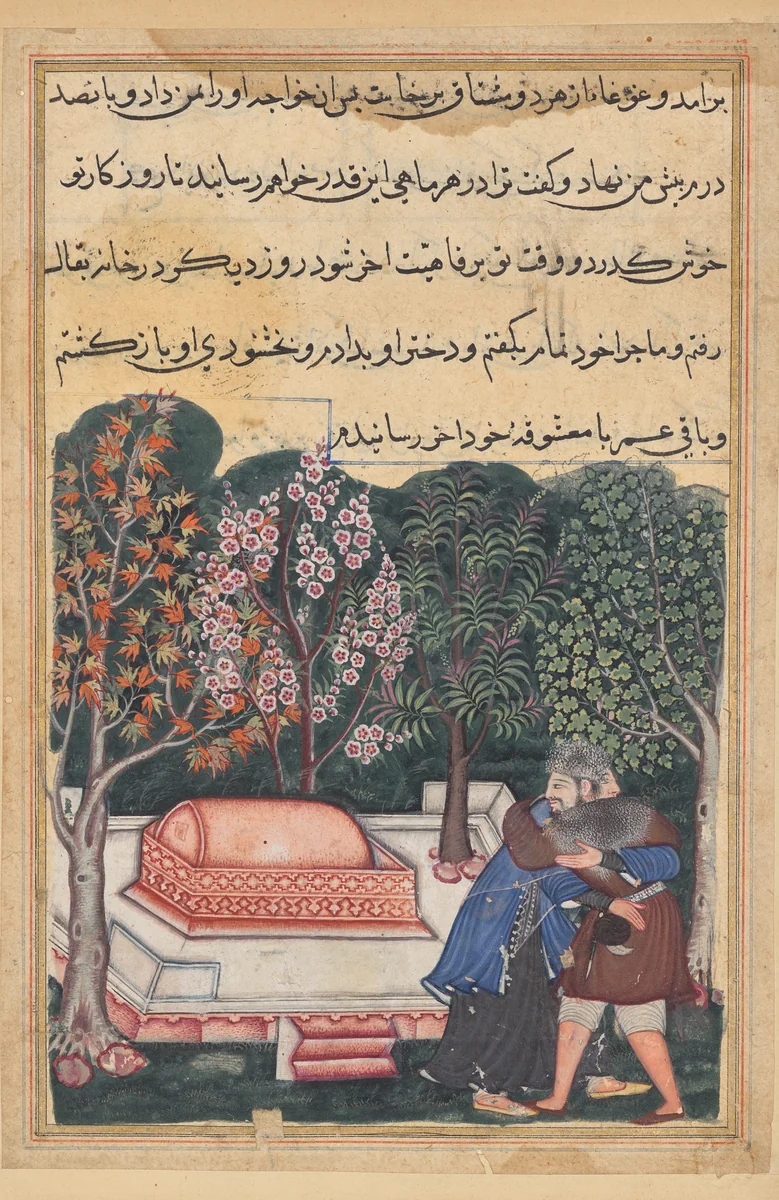 برامد و غوغا از هر دو مشتاق برخاست پس ان خواجه اورا بمن داد و پانصد
درم پیش من نهاد و کفت ترا در هر ماهی این قدر خواهم رسانید تا روزکار تو
خوش کذرد و وقت تو برفاهیت اخر شود روز دیکر در خانه بقال
رفتم و ماجرا خود تمام بکفتم و دختر او بدادم و بخشنودی او باز کشتم
و باقی عمر با معشوقهٔ خود اخر رسانیدم